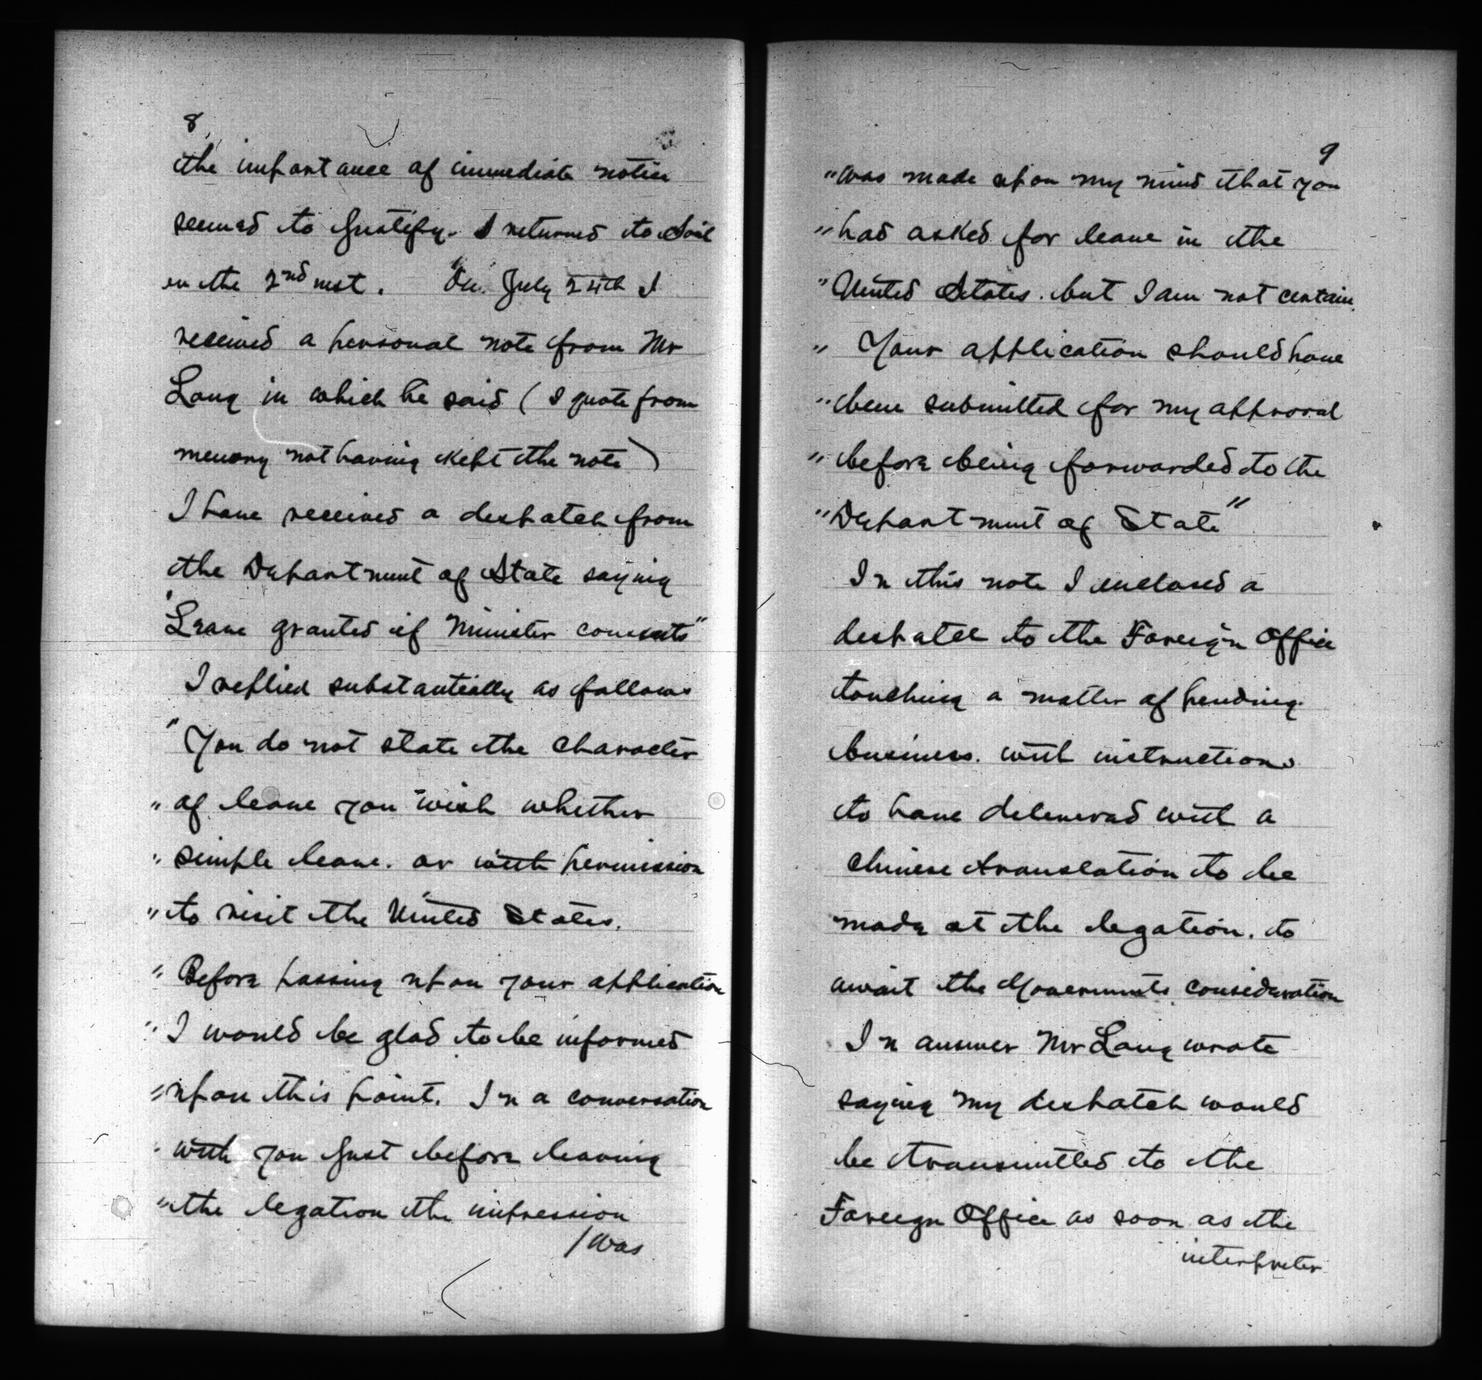 8
the importance of immediate notice
seemed to justify. I returned to Soil
on the 2nd inst. On July 24th I
received a personal note from Mr
Long in which he said ( I quote from
memory not having kept the note )
I have received a despatch from
the Department of State saying
"Leave granted if Minister consents"
I replied substantially as follows
"You do not state the character
"of leave you wish whether
"simple leave. or with permission
"to visit the United States.
"Before passing upon your application
"I would be glad to be informed
"upon this point. In a conversation
"with you just before leaving
"the legation the impression
/was
9
"was made upon my mind that you
"had asked for leave in the
"United States. but I am not certain.
" Your application should have
"been submitted for my approval
"before being forwarded to the
"Department of State"
In this note I enclosed a
despatch to the Foreign Office
touching a matter of pending
business. with instructions
to have delivered with a
Chinese translation to be
made at the legation. to
await the Governments consideration
In answer Mr Long wrote
saying my despatch would
be transmitted to the
Foreign Office as soon as the
interpreter